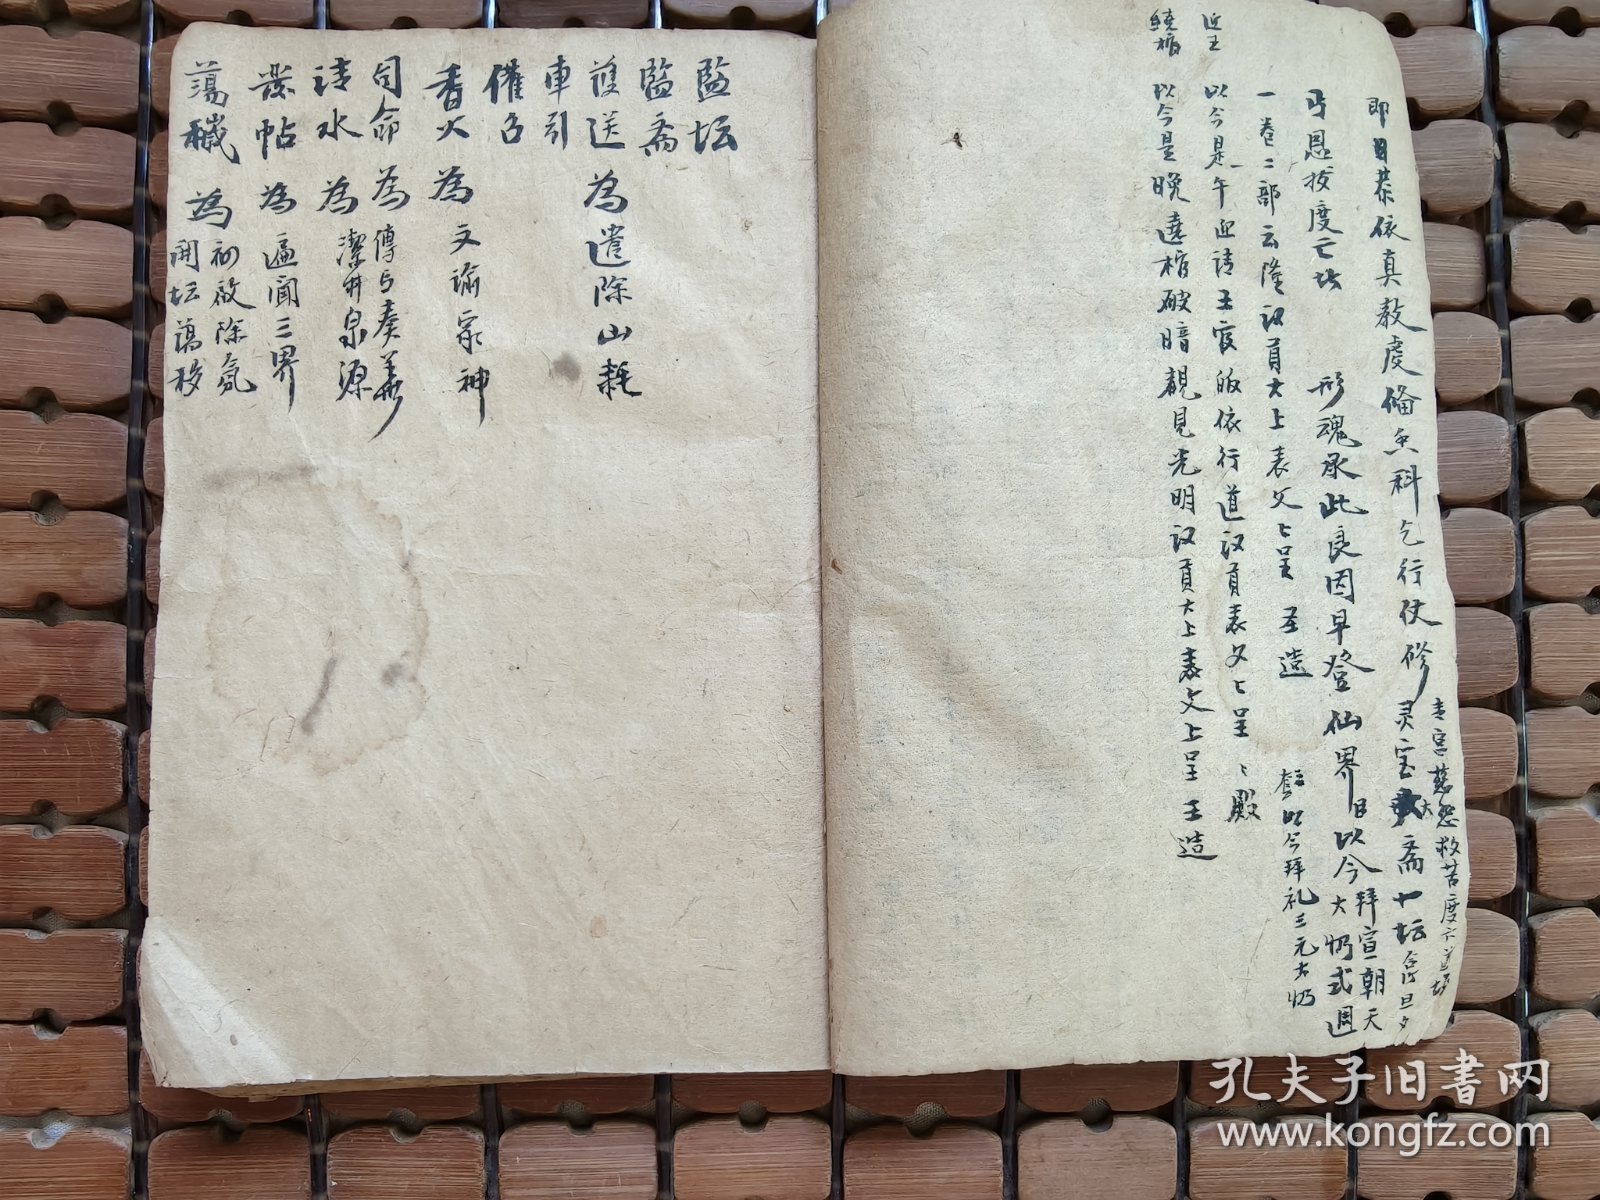 即日恭依真教虔備
科乞行伏修
灵宝大斋十坛
青宮慈悲救苦度
恩拔度亡
形魂承此良因早登仙界
以今
拜宣朝天
大
式週
一卷二部云隆
大上表文上呈
圣造
以今拜礼三元大
近王
以今是午迎請王
皈依行道
表文上呈
殿
繞棺
以今是晚遶棺破暗覩見光明
大上表文上呈
王造
監坛
監斋
護送 為遣除山耗
車引
催召
香火 為文諭家神
司命 為傳与奏善
請水 為潔井泉源
發帖 為遍聞三界
蕩穢 為初啟除氛
開坛蕩秽
孔夫子旧书网
www.kongfz.com